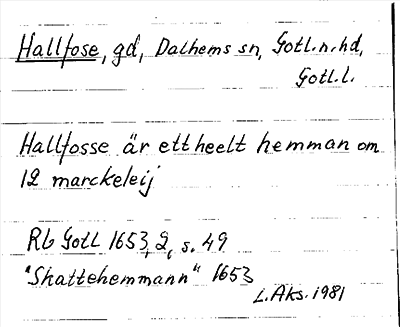 Hallfose, gd, Dalhems sn, Gotl.n.hd,
Gotl.l.
Hallfosse är ett heelt hemman om
12 marckeleij
Rb Gotl 1653, 2, s. 49
"Skattehemmann" 1653
L. Aks. 1981